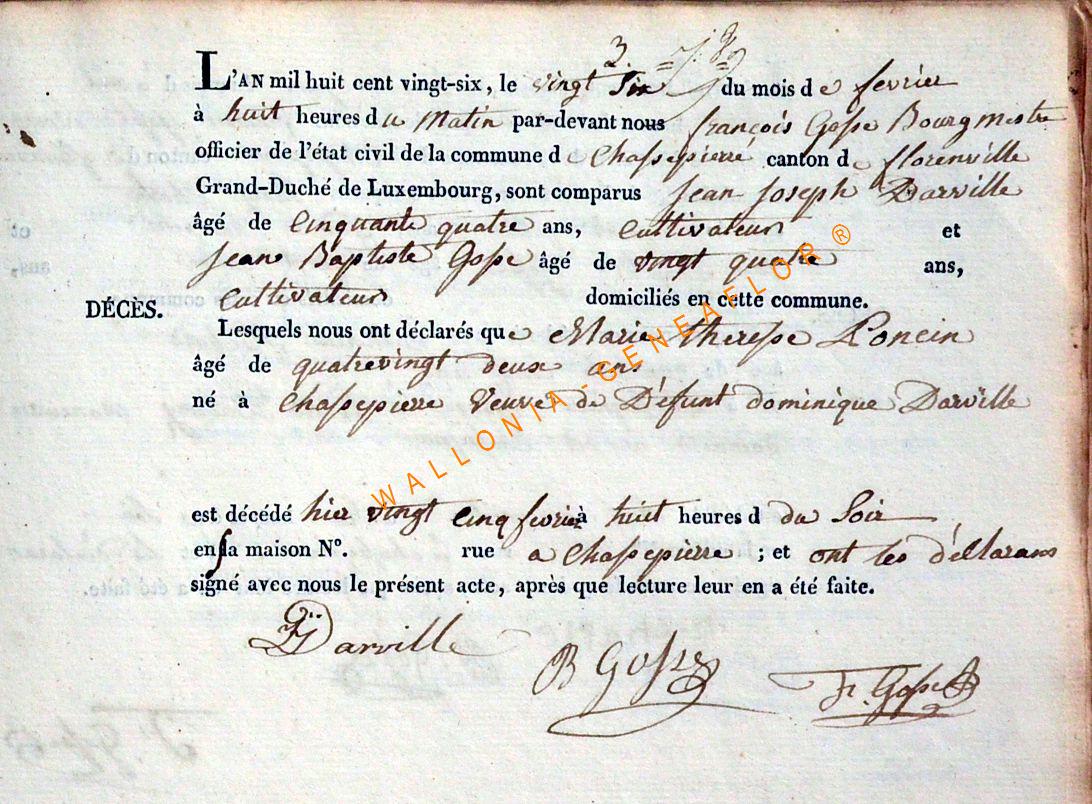 3.
L'AN mil huit cent vingt-six, le vingt Six du mois de fevrier
à huit heures du Matin par-devant nous françois Gosse Bourgmestre
officier de l'état civil de la commune de Chassepierre canton de florenville
Grand-Duché de Luxembourg, sont comparus Jean Joseph Darville
âgé de Cinquante quatre ans, Cultivateur et
Jean Baptiste Gosse âgé de vingt quatre ans,
Cultivateur domiciliés en cette commune.
DÉCÈS.
Lesquels nous ont déclarés que Marie therese Poncin
âgé de quatrevingt deux ans
né à Chassepierre Veuve de Défunt dominique Darville
est décédé hier vingt Cinq fevrier à huit heures d du Soir
en sa maison N°. rue a Chassepierre ; et ont les déclarans
signé avec nous le présent acte, après que lecture leur en a été faite.
Darville
B Gosse
Fr. Gosse
WALLONIA-GENEAFLOR ®